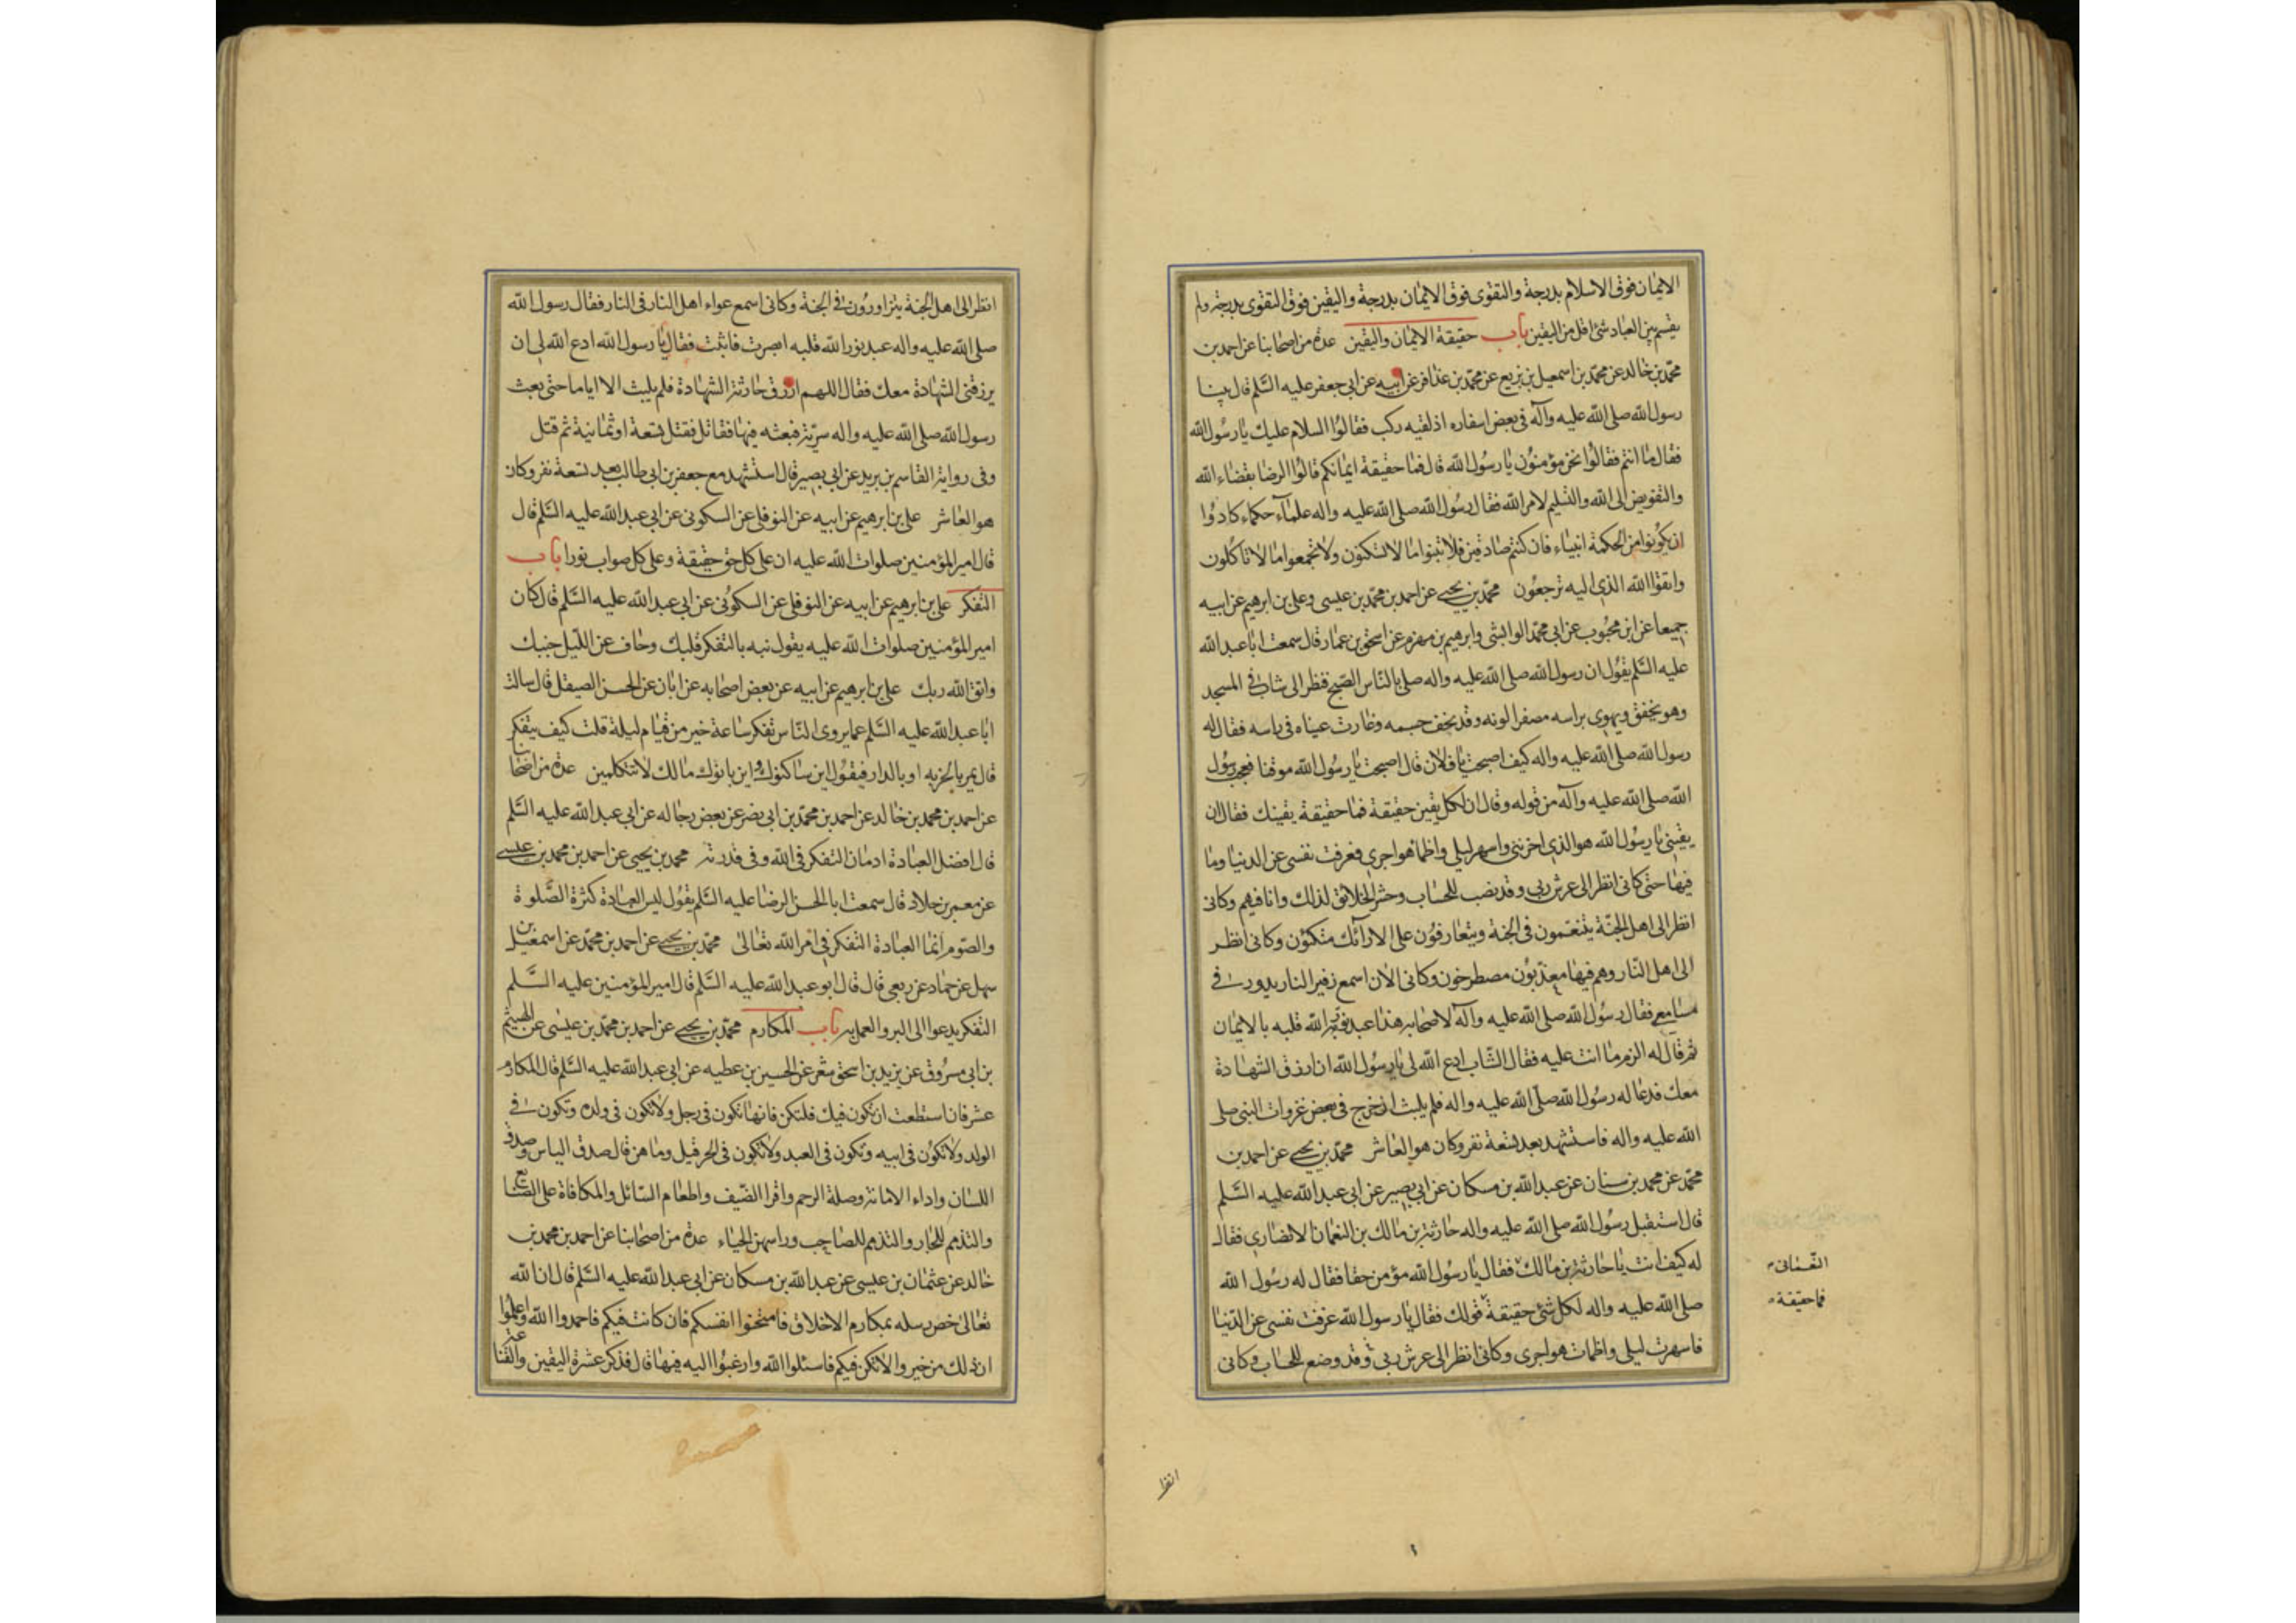 الايمان فوق الاسلام بدرجة والتقوى فوق الايمان بدرجة واليقين فوق التقوى بدرجة ولم
يقسم بين العباد شئ اقل من اليقين باب حقيقة الايمان واليقين عدة من اصحابنا عن احمد بن
محمد بن خالد عن محمد بن اسمعيل بن بزيع عن محمد بن عذافر عن ابيه عن ابي جعفر عليه السلم قال بينا
رسول الله صلى الله عليه وآله في بعض اسفاره اذ لقيه ركب فقالوا السلام عليك يا رسول الله
فقال ما انتم فقالوا نحن مؤمنون يا رسول الله قال فما حقيقة ايمانكم قالوا الرضا بقضاء الله
والتفويض الى الله والتسليم لامر الله فقال رسول الله صلى الله عليه واله علمآء حكماء كادوا
ان يكونوا من الحكمة انبياء فان كنتم صادقين فلا تبنوا ما لا تسكنون ولا تجمعوا ما لا تاكلون
واتقوا الله الذي اليه ترجعون محمد بن يحيى عن احمد بن محمد بن عيسى وعلي بن ابرهيم عن ابيه
جميعا عن ابن محبوب عن ابي محمد الوابشي وابرهيم بن مهزم عن اسحق بن عمار قال سمعت ابا عبد الله
عليه السلم يقول ان رسول الله صلى الله عليه واله صلى بالناس الصبح فنظر الى شاب في المسجد
وهو يخفق ويهوي براسه مصفرا لونه وقد نحف جسمه وغارت عيناه في راسه فقال له
رسول الله صلى الله عليه واله كيف اصبحت يا فلان قال اصبحت يا رسول الله موقنا فعجب رسول
الله صلى الله عليه وآله من قوله وقال ان لكل يقين حقيقة فما حقيقة يقينك فقال ان
يقيني يا رسول الله هو الذي احزنني واسهر ليلي واظمأ هواجري فعزفت نفسي عن الدنيا وما
فيها حتى كاني انظر الى عرش ربي وقد نصب للحساب وحشر الخلائق لذلك وانا فيهم وكاني
انظر الى اهل الجنة يتنعمون في الجنة ويتعارفون على الارآئك متكئون وكاني انظر
الى اهل النار وهم فيها معذبون مصطرخون وكاني الان اسمع زفير النار يدور في
مسامعي فقال رسول الله صلى الله عليه وآله لاصحابه هذا عبد نور الله قلبه بالايمان
ثم قال له الزم ما انت عليه فقال الشاب ادع الله لي يا رسول الله ان ارزق الشهادة
معك فدعا له رسول الله صلى الله عليه واله فلم يلبث ان خرج في بعض غزوات النبي صلى
الله عليه واله فاستشهد بعد تسعة نفر وكان هو العاشر محمد بن يحيى عن احمد بن
محمد عن محمد بن سنان عن عبد الله بن مسكان عن ابي بصير عن ابي عبد الله عليه السلم
قال استقبل رسول الله صلى الله عليه واله حارثة بن مالك بن النعمان الانصاري فقال
له كيف انت يا حارثة بن مالك فقال يا رسول الله مؤمن حقا فقال له رسول الله
صلى الله عليه واله لكل شئ حقيقة قولك فقال يا رسول الله عزفت نفسي عن الدنيا
فاسهرت ليلي واظمات هواجري وكاني انظر الى عرش ربي وقد وضع للحساب وكاني
فما حقيقة
انظر
انظر الى اهل الجنة يتزاورون في الجنة وكاني اسمع عواء اهل النار في النار فقال رسول الله
صلى الله عليه واله عبد نور الله قلبه ابصرت فاثبت فقال يا رسول الله ادع الله لي ان
يرزقني الشهادة معك فقال اللهم ارزق حارثة الشهادة فلم يلبث الا اياما حتى بعث
رسول الله صلى الله عليه واله سرية فبعثه فيها فقاتل فقتل تسعة او ثمانية ثم قتل
وفي رواية القاسم بن بريد عن ابي بصير قال استشهد مع جعفر بن ابي طالب بعد تسعة نفر وكان
هو العاشر علي بن ابرهيم عن ابيه عن النوفلي عن السكوني عن ابي عبد الله عليه السلم قال
قال امير المؤمنين صلوات الله عليه ان على كل حق حقيقة وعلى كل صواب نورا باب
التفكر علي بن ابرهيم عن ابيه عن النوفلي عن السكوني عن ابي عبد الله عليه السلم قال كان
امير المؤمنين صلوات الله عليه يقول نبه بالتفكر قلبك وجاف عن الليل جنبك
واتق الله ربك علي بن ابرهيم عن ابيه عن بعض اصحابه عن ابان عن الحسن الصيقل قال سالت
ابا عبد الله عليه السلم عما يروي الناس تفكر ساعة خير من قيام ليلة قلت كيف يتفكر
قال يمر بالخربه او بالدار فيقول اين ساكنوك واين بانوك ما لك لا تتكلمين عدة من اصحابنا
عن احمد بن محمد بن خالد عن احمد بن محمد بن ابي نصر عن بعض رجاله عن ابي عبد الله عليه السلم
قال افضل العبادة ادمان التفكر في الله وفي قدرته محمد بن يحيى عن احمد بن محمد بن عيسى
عن معمر بن خلاد قال سمعت ابا الحسن الرضا عليه السلم يقول ليس العبادة كثرة الصلوة
والصوم انما العبادة التفكر في امر الله تعالى محمد بن يحيى عن احمد بن محمد عن اسمعيل بن
سهل عن حماد عن ربعي قال قال ابو عبد الله عليه السلم قال امير المؤمنين عليه السلم
التفكر يدعوا الى البر والعمل به باب المكارم محمد بن يحيى عن احمد بن محمد بن عيسى عن الهيثم
بن ابي مسروق عن يزيد بن اسحق شعر عن الحسين بن عطيه عن ابي عبد الله عليه السلم قال المكارم
عشر فان استطعت ان تكون فيك فلتكن فانها تكون في رجل ولا تكون في ولده وتكون في
الولد ولا تكون في ابيه وتكون في العبد ولا تكون في الحر قيل وما هن قال صدق الياس وصدق
اللسان واداء الامانة وصلة الرحم واقرا الضيف واطعام السائل والمكافاة على الصنايع
والتذمم للجار والتذمم للصاحب وراسهن الحياء عدة من اصحابنا عن احمد بن محمد بن
خالد عن عثمان بن عيسى عن عبد الله بن مسكان عن ابي عبد الله عليه السلم قال ان الله
تعالى خص رسله بمكارم الاخلاق فامتحنوا انفسكم فان كانت فيكم فاحمدوا الله واعلموا
ان ذلك من خير والا تكن فيكم فاسئلوا الله وارغبوا اليه فيها قال فذكر عشرة اليقين والقناعة